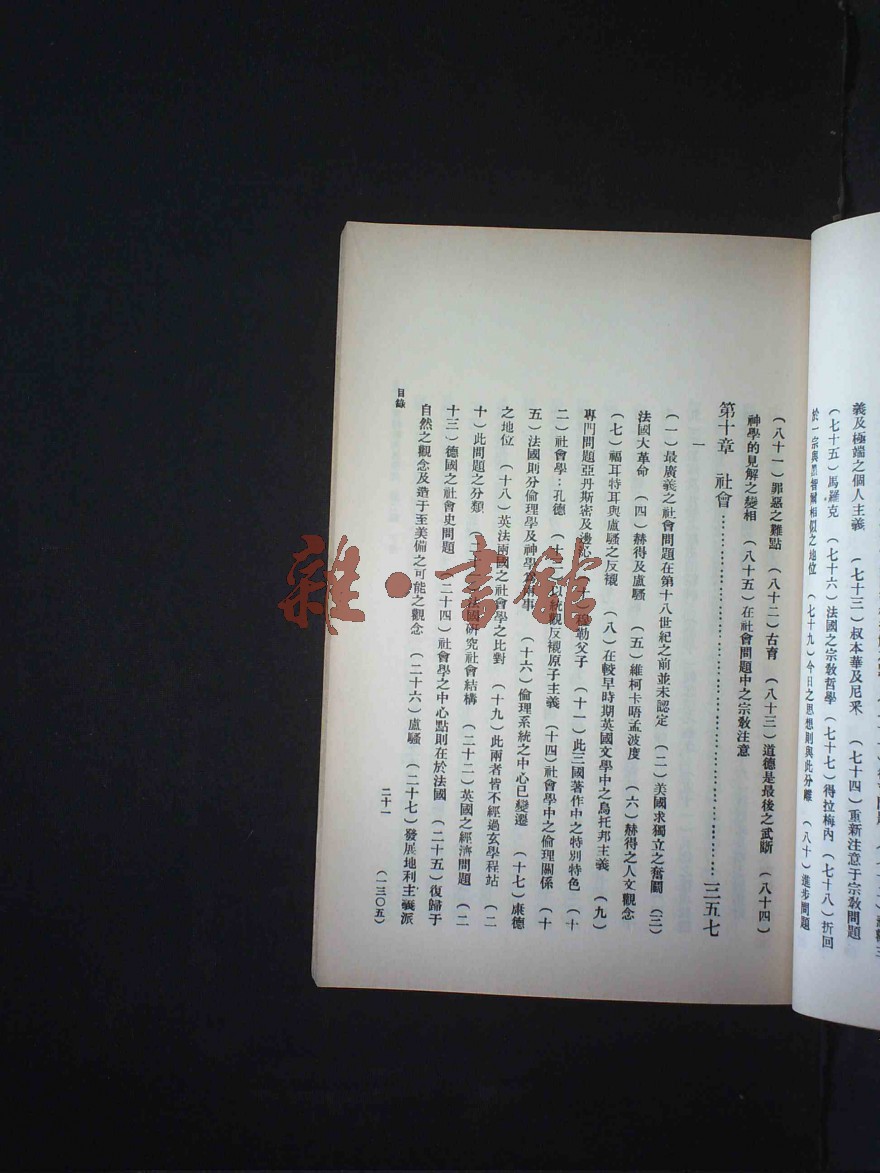 義及極端之個人主義　（七十三）叔本華及尼采　（七十四）重新注意于宗教問題
（七十五）馬羅克　（七十六）法國之宗教哲學　（七十七）得拉梅內　（七十八）折回
於一宗與　相似之地位　（七十九）今日之思想則與此分離　（八十）進步問題
（八十一）罪惡之難點　（八十二）古育　（八十三）道德是最後之武斷　（八十四）
神學的見解之變相　（八十五）在社會問題中之宗教注意
第十章　社會……………………三五七
一
（一）最廣義之社會問題在第十八世紀之前並未認定　（二）美國求獨立之奮鬭　（三）
法國大革命　（四）赫得及盧騷　（五）維柯卡唔孟波度　（六）赫得之人文觀念
（七）福耳特耳與盧騷之反襯　（八）在較早時期英國文學中之烏托邦主義　（九）
專門問題亞丹斯密及邊沁　（十）穆勒父子　（十一）此三國著作中之特別特色　（十
二）社會學：孔德　（十三）以統觀反襯原子主義　（十四）社會學中之倫理關係　（十
五）法國則分倫理學及神學為兩事　（十六）倫理系統之中心已變遷　（十七）康德
之地位　（十八）英法兩國之社會學之比對　（十九）此兩者皆不經過玄學程站　（二
十）此問題之分類　（二十一）法國研究社會結構　（二十二）英國之經濟問題　（二
十三）德國之社會史問題　（二十四）社會學之中心點則在於法國　（二十五）復歸于
自然之觀念及造于至美備之可能之觀念　（二十六）盧騷　（二十七）發展地利主義派
目錄
二十一
（一三〇五）
雜·書館